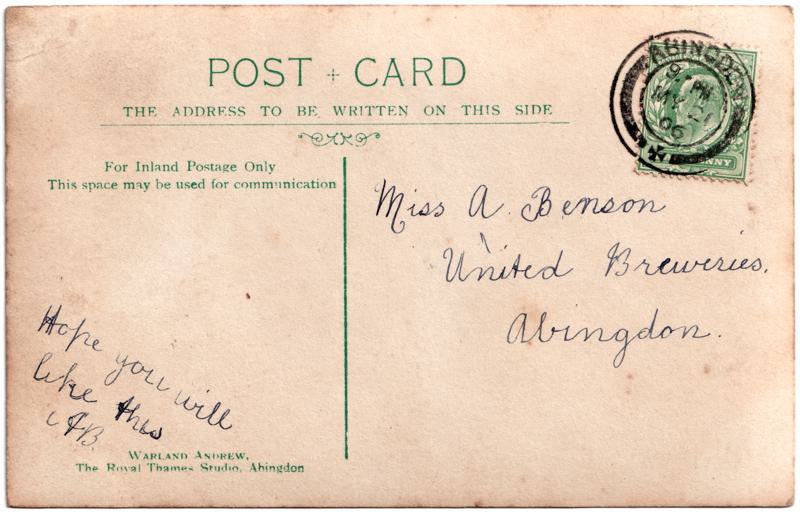 POST + CARD
THE ADDRESS TO BE WRITTEN ON THIS SIDE
For Inland Postage Only
This space may be used for communication
ABINGDON
06
PENNY
Miss A. Benson
United Breweries.
Abingdon.
Hope you will
like this
AB.
WARLAND ANDREW,
The Royal Thames Studio, Abingdon